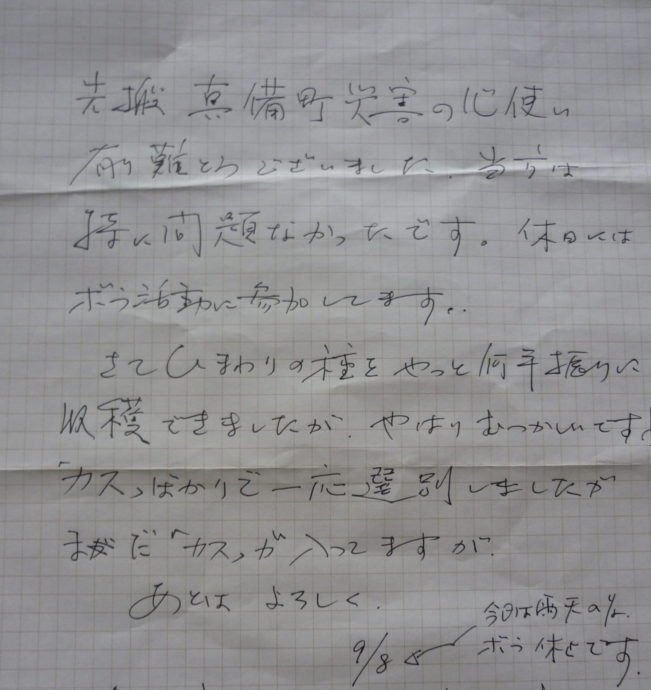 先搬 真備町災害の心使い
有り難とうございました。当方は
特に問題なかったです。休日には
ボラ活動に参加してます。
さてひまわりの種をやっと何年振りに
収穫できましたが、やはりむつかしいです!
「カス」ばかりで一応選別しましたが
まだ「カス」が入ってますが、
あとは よろしく。
今日は雨天の為、
ボラ休みです。
9/8